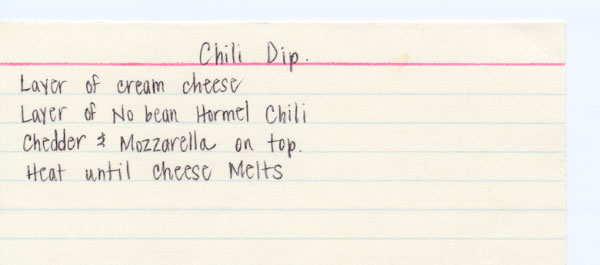 Chili Dip.
Layer of cream cheese
Layer of No bean Hormel Chili
Chedder & Mozzarella on top.
Heat until cheese Melts